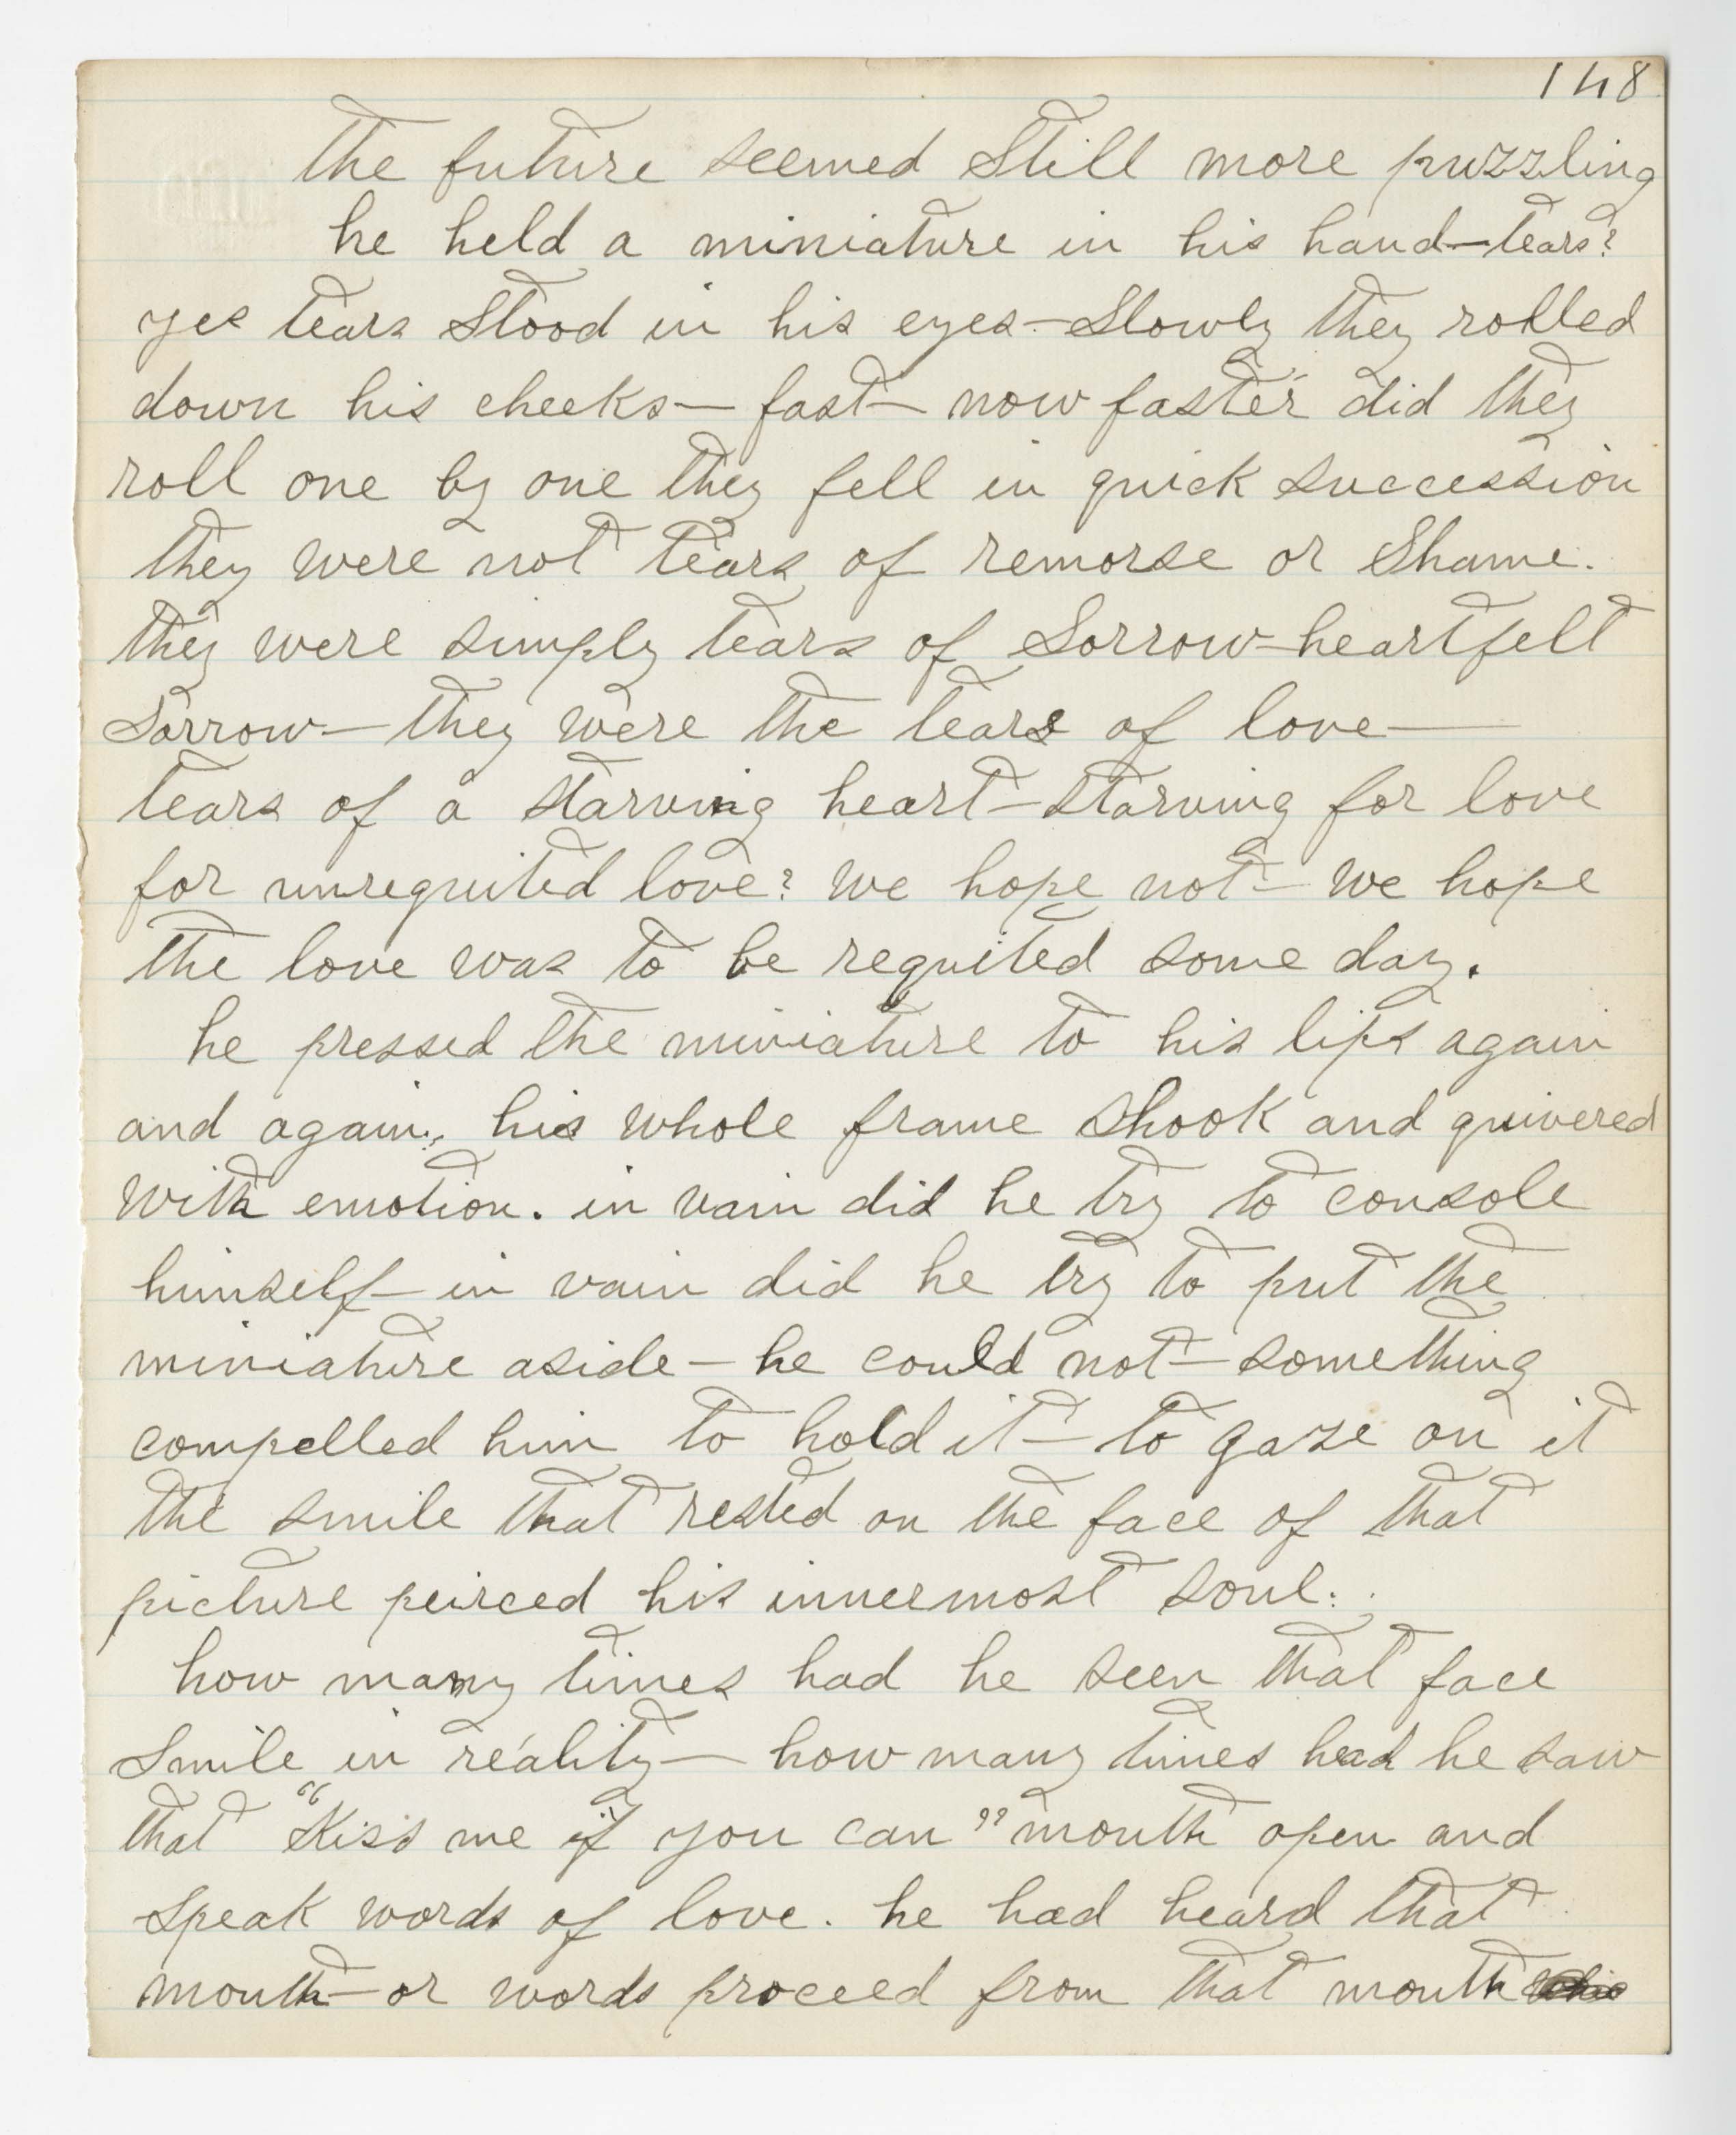 148
the future seemed Still more puzzling
he held a miniature in his hand—tears?
yes tears Stood in his eyes—Slowly they rolled
down his cheeks—fast—now faster did they
roll one by one they fell in quick succession
they were not tears of remorse or Shame.
they were simply tears of Sorrow—heartfelt
Sorrow—they were the tears of love—
tears of a starving heart—starving for love
for unrequited love? we hope not—we hope
the love was to be requited some day.
he pressed the miniature to his lips again
and again, his whole frame shook and quivered
with emotion. in vain did he try to console
himself—in vain did he try to put the
miniature aside—he could not—something
compelled him to hold it—to gaze on it
the smile that rested on the face of that
picture peirced his innermost soul.
how many times had he seen that face
Smile in reality—how many times had he saw
that "Kiss me if you can" mouth open and
speak words of love. he had heard that
mouth—or words proceed from that mouth